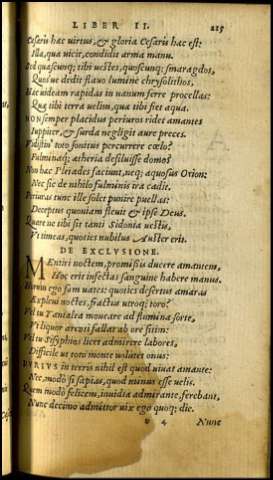 LIBER II. 215
Cæsaris hac virtus, & gloria Cæsaris hac est:
Illa, qua vicit, condidit arma manu.
Sed quascunq; tibi uestes, quoscunq; smaragdos,
Quos'ue dedit flauo lumine chrysolithos,
Hæc uideam rapidas in uanum ferre procellas:
Quæ tibi terra uelim, quæ tibi fiet aqua.
NON semper placidus periuros ridet amantes
Iuppiter, & surda negligit aure preces.
Vidistis' toto sonitus percurrere cœlo?
Fulminaq; ætheria desiluisse domo?
Non hæc Pleiades faciunt, neq; aquosus Orion:
Nec sic de nihilo fulminis ira cadit.
Periuras tunc ille solet punire puellas:
Deceptus quoniam fleuit & ipse Deus.
Quare ne tibi sit tanti Sidonia uestis,
Vt timeas, quoties nubilus Auster erit.
DE EXCLVSIONE.
MEntiri noctem, promissis ducere amantem,
Hoc erit infectas sanguine habere manus.
Horum ego sum uates: quoties desertus amaras
Expleui noctes, fractus utroq; toro?
Vel tu Tantalea moueare ad flumina sorte,
Vt liquor arenti fallat ab ore sitim:
Vel tu Sisyphios licet admirere labores,
Difficile ut toto monte uolutet onus:
DVRIVS in terris nihil est quod uiuat amante:
Nec, modò si sapias, quod minus esse uelis.
Quem modò felicem, inuidia admirante, ferebant,
Nunc decimo admittor uix ego quoq; die.
u 4 Nunc